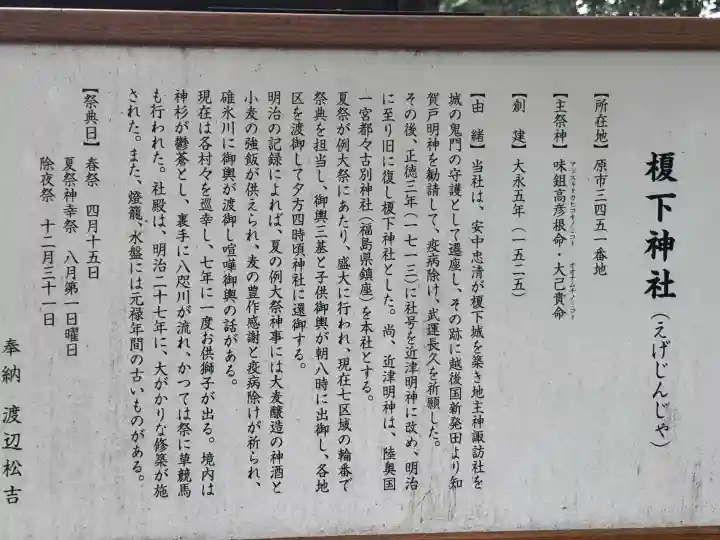 榎下神社(えげじんじゃ)
【所在地】原市三四五一番地
【主祭神】味鉏高彦根命・大己貴命
アジスキタカヒコネノミコト オオナムチノミコト
【創 建】大永五年(一五二五)
【由 緒】当社は、安中忠清が榎下城を築き地主神諏訪社を
城の鬼門の守護として遷座し、その跡に越後国新発田より知
賀戸明神を勧請して、疫病除け、武運長久を祈願した。
その後、正徳三年(一七一三)に社号を近津明神に改め、明治
に至り旧に復し榎下神社とした。尚、近津明神は、陸奥国
一宮都々古別神社(福島県鎮座)を本社とする。
夏祭が例大祭にあたり、盛大に行われ、現在七区域の輪番で
祭典を担当し、御輿三基と子供御輿が朝八時に出御し、各地
区を渡御して夕方四時頃神社に還御する。
明治の記録によれば、夏の例大祭神事には大麦醸造の神酒と
小麦の強飯が供えられ、麦の豊作感謝と疫病除けが祈られ、
碓氷川に御輿が渡御し喧嘩御輿の話がある。
現在は各村々を巡幸し、七年に一度お供獅子が出る。境内は
神杉が鬱蒼とし、裏手に八咫川が流れ、かつては祭に草競馬
も行われた。社殿は、明治二十七年に、大がかりな修築が施
された。また、燈籠、水盤には元禄年間の古いものがある。
【祭典日】春祭 四月十五日
夏祭神幸祭 八月第一日曜日
除夜祭 十二月三十一日
奉納 渡辺松吉